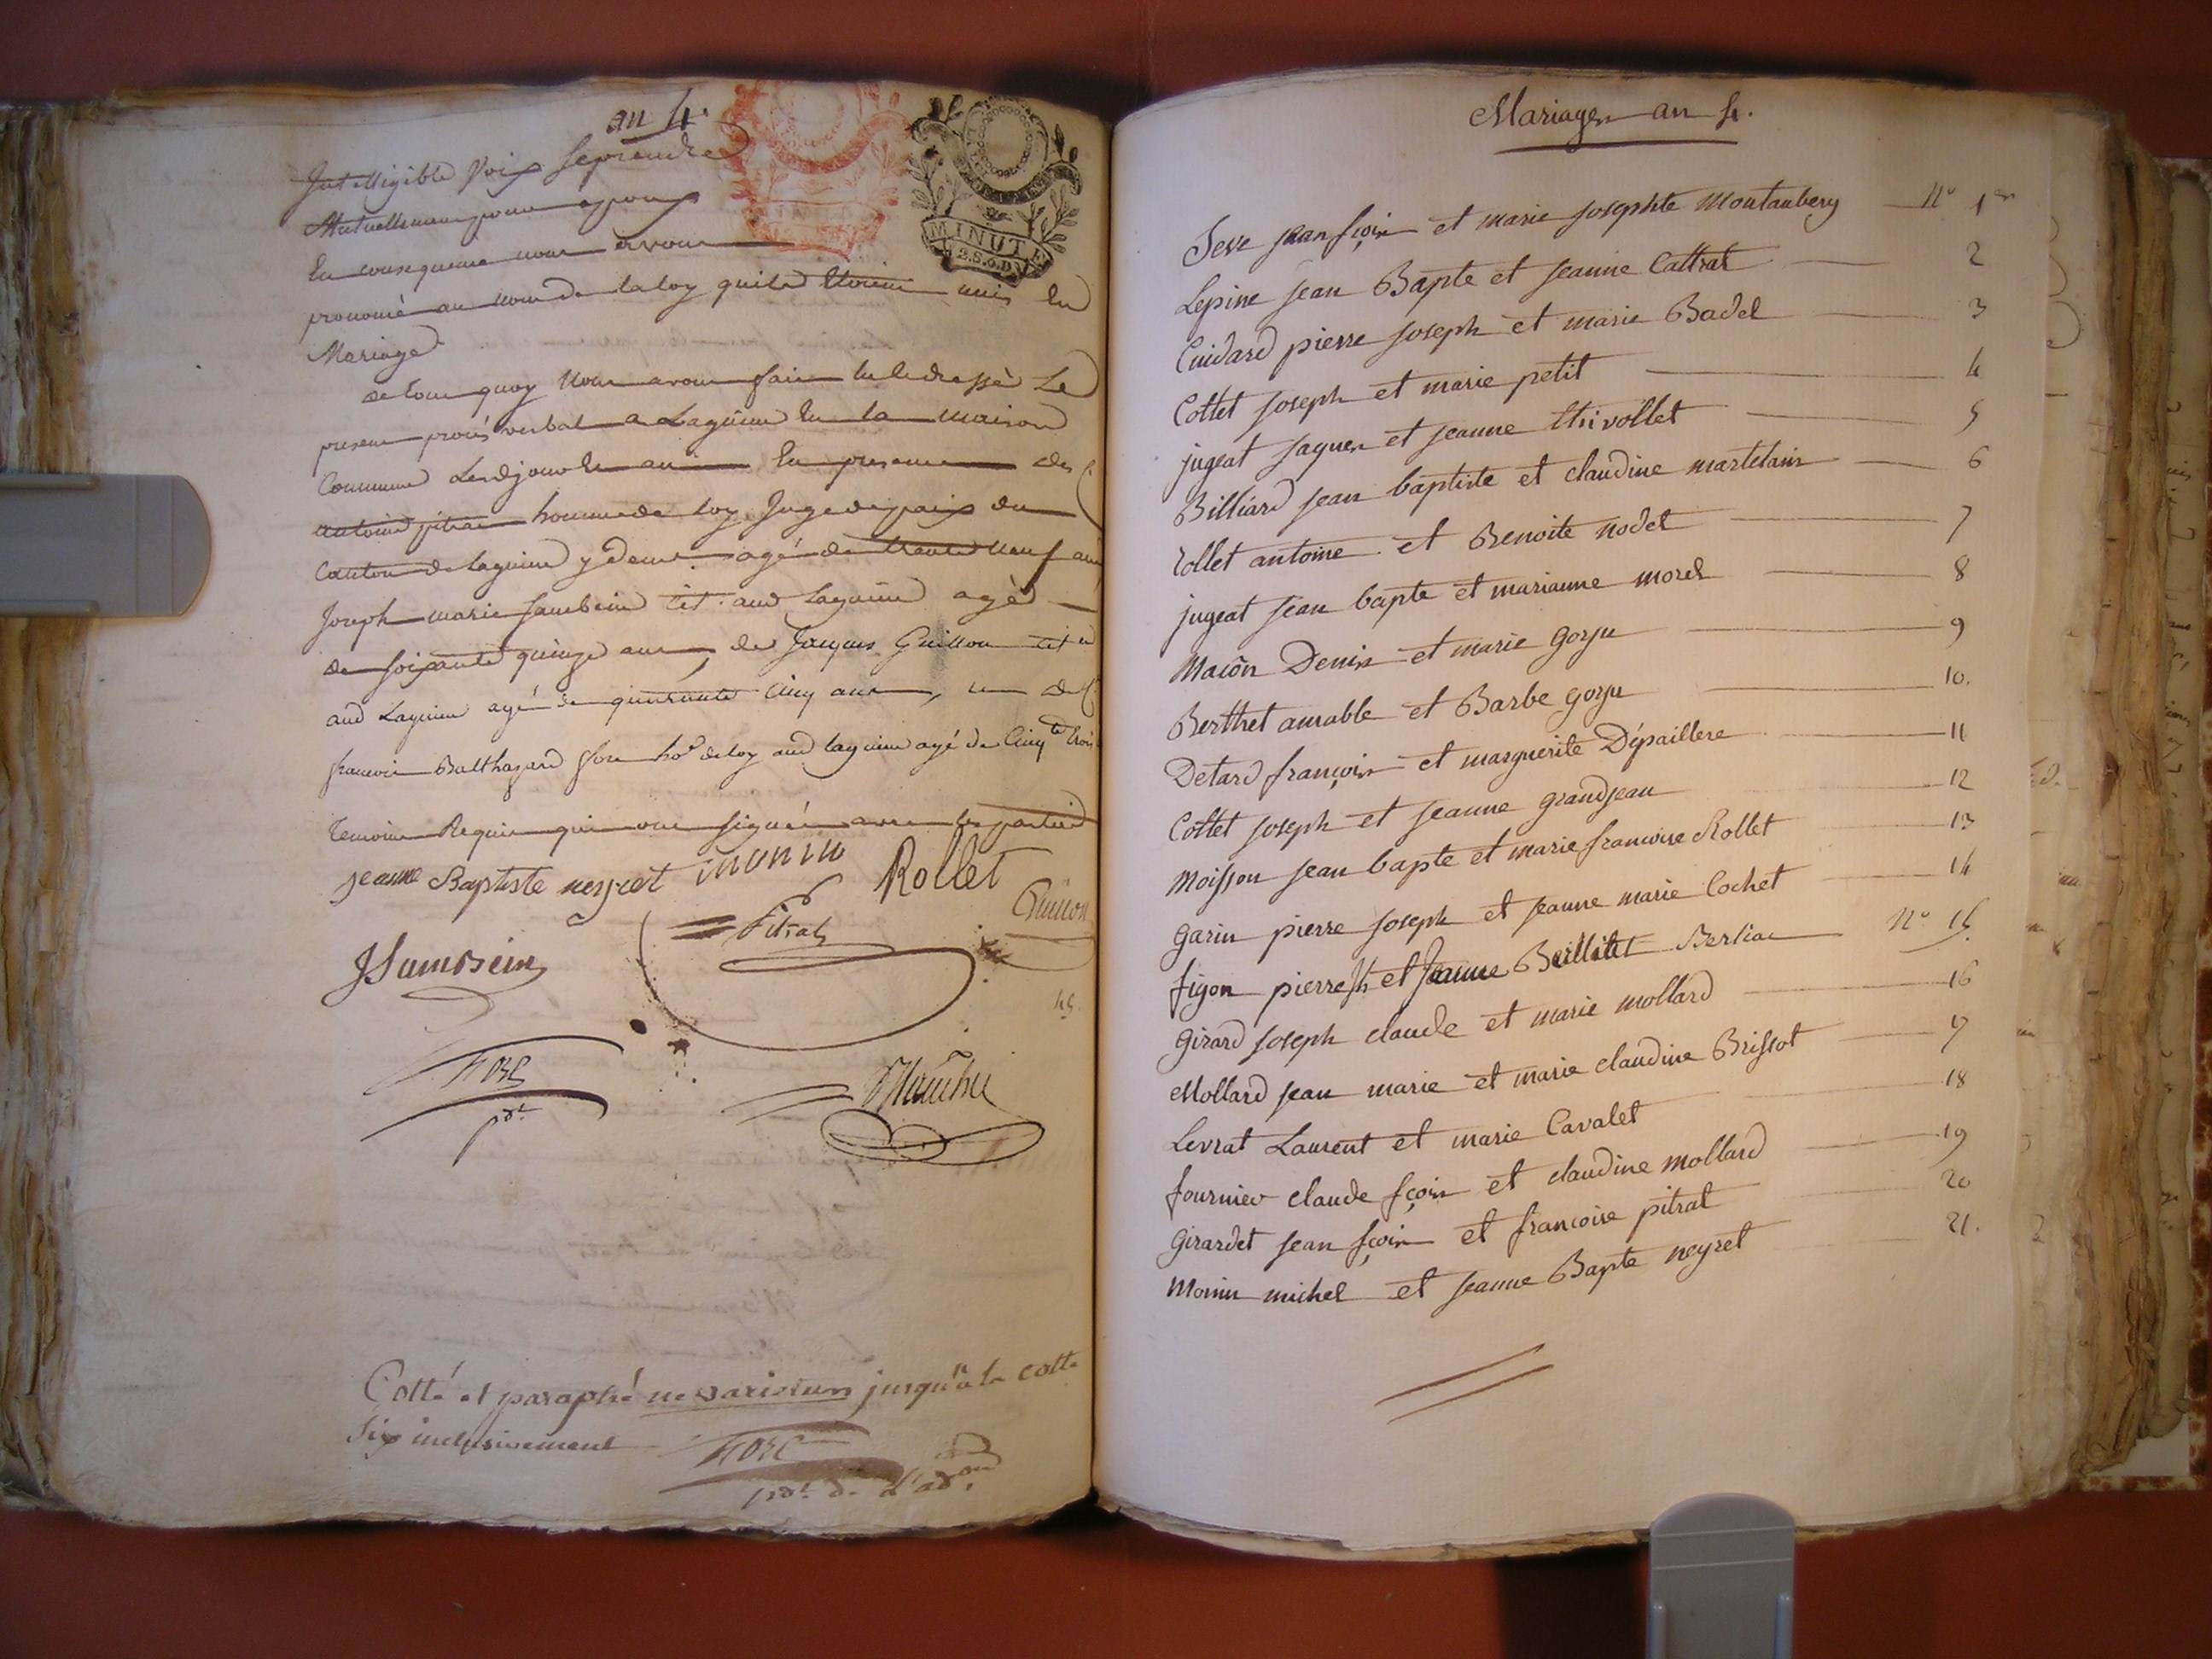 an 4.
Intelligible Voix se prendre
Mutuellement pour epoux
En consequence nous avons
prononcé au nom de la loy quils etoient unis en
Mariage
de tout quoy Nous avons fait et dressé Le
present procés verbal a Lagnieu en la maison
Commune Lesd jour et an en presence des
antoine pitrat homme de loy Juge de paix du
Canton de lagnieu y demt. agé de trente neuf ans
Joseph marie Jambein cit. aud Lagnieu agé
de soixante quinze ans, de Jacques Guillon cit
aud Lagnieu agé de quarante cinq ans, et de
francois Balthazard hoe de loy aud lagnieu agé de Cinqte trois
temoins Requis qui ont signé avec les parties
jeanne Baptiste neyret monin Rollet
Pitrat Guillon
JJambein
45.
pdt
Cotté et paraphé ne varietur jusqu'à la cotte
Six inclusivement
pdt. de l'adon.
MINUTE
Mariages an 4.
Seve jean fçois et marie josephte Montaubery N° 1er
Lepine jean Bapte et jeanne Cattrat 2
Cuidard pierre joseph et marie Badel 3
Cottet joseph et marie petit 4
jugeat jaques et jeanne thivollet 5
Billiard jean baptiste et claudine martelain 6
rollet antoine et Benoite nodet 7
jugeat jean bapte et marianne morel 8
Macôn Denis et marie gorju 9
Berthet amable et Barbe gorju 10.
Detard françois et marguerite Dépaillere 11
Cottet joseph et jeanne grandjean 12
Moisson jean bapte et marie francoise Rollet 13
garin pierre joseph et jeanne marie Cochet 14
figon pierre jh et jeanne Berliat N° 15.
girard joseph claude et marie mollard 16
Mollard jean marie et marie claudine Brissot 17
Levrat Laurent et marie Cavalet 18
fournier claude fçois et claudine mollard 19
girardet jean fçois et francoise pitrat 20
Monin michel et jeanne Bapte neyret 21.